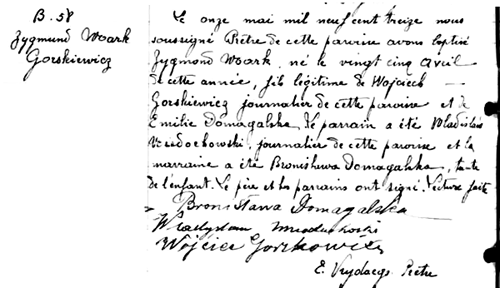 B. 58
Zygmund Woark
Gorskiewicz
Le onze mai mil neuf cent treize nous
soussigné Prêtre de cette paroisse avons baptisé
Zygmond Woark, né le vingt cinq avril
de cette année, fils légitime de Wojciech
Gorskiewicz journalier de cette paroisse et de
Emilie Domagalska. Le parrain a été Wladislas
journalier de cette paroisse et la
marraine a été Bronislawa Domagalska, tante
de l'enfant. Le père et les parrains ont signé. Lecture faite
Bronisława Domagalska
Władysław
Wojciec Gorzkowicz
E. Vrydaegs Prêtre